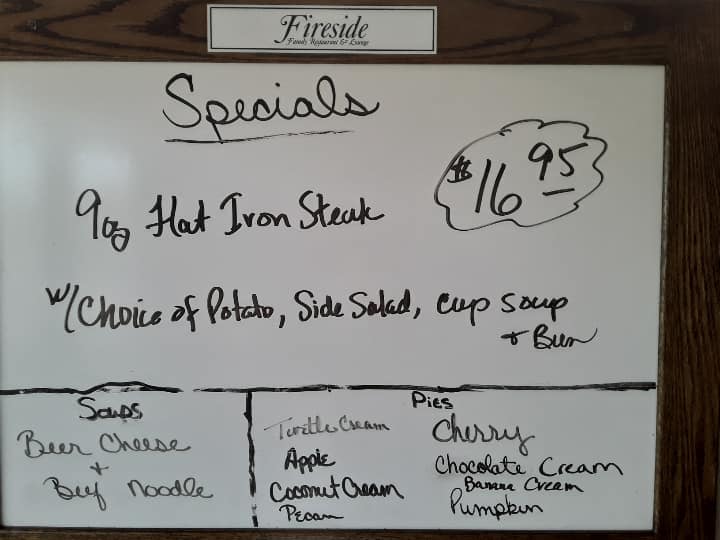 Fireside
Family Restaurant & Lounge
Specials
$16 95
9oz Flat Iron Steak
w/Choice of Potato, Side Salad, cup soup
+ Bun
Soups
Beer Cheese
+
Beef Noodle
Pies
Turtle Cream
Apple
Coconut Cream
Pecan
Cherry
Chocolate Cream
Banana Cream
Pumpkin